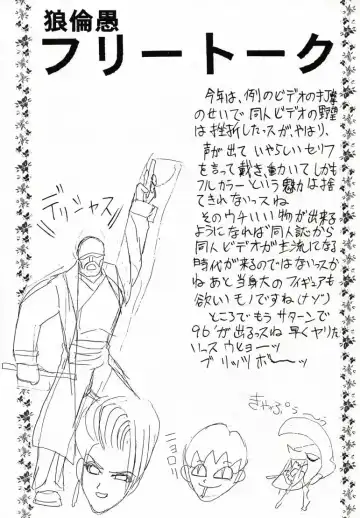 狼倫愚
フリートーク
今年は、例のビデオの打撃
のせいで同人ビデオの野望
は挫折したっスがやはり、
声が出ていやらしいセリフ
を言って戴き、動いてしかも
フルカラーという魅力は捨
てきれないっスね
そのウチいい物が出来る
ようになれば同人誌から
同人ビデオが主流になる
時代が来るのではないっスか
ねあと当身大のフィギュアも
欲いモノですね(ナゾ)
ところでもうサターンで
96が出るっスね早くヤリた
いっスウヒョーッ
ブリッツボーーッ
デリシャス
ニョロリ
きゃぷ's